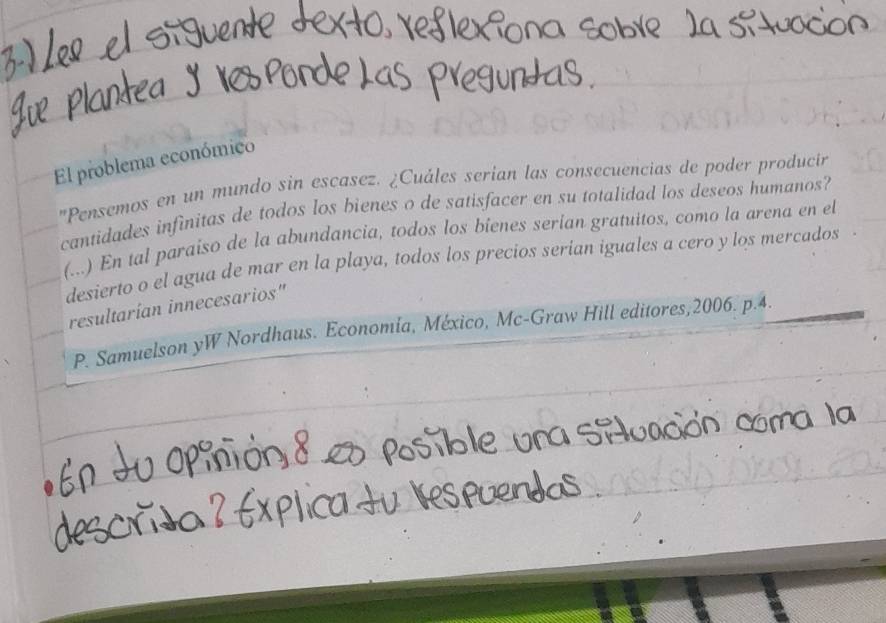 3.) Lee el siguente texto, reflexiona sobre la situación
que plantea y responde las preguntas.
El problema económico
"Pensemos en un mundo sin escasez. ¿Cuáles serian las consecuencias de poder producir
cantidades infinitas de todos los bienes o de satisfacer en su totalidad los deseos humanos?
(...) En tal paraíso de la abundancia, todos los bienes serían gratuitos, como la arena en el
desierto o el agua de mar en la playa, todos los precios serían iguales a cero y los mercados
resultarían innecesarios"
P. Samuelson yW Nordhaus. Economía, México, Mc-Graw Hill editores,2006. p.4.
• En tu opinión, ¿ es posible una situación coma la
descrita? Explica tu respuendas.